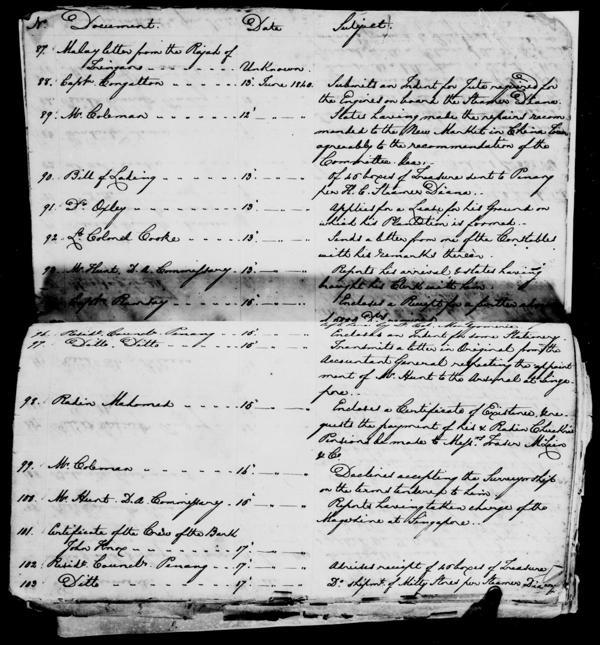 No. Document. Date Subject.
87. Malay letter from the Rajah of
Tringanu - - - - - - Unknown.
88. Captn. Congalton - - - - 13 June 1840. Submits an Indent for Jute required for
the Engines on board the Steamer Diana.
89. Mr. Coleman - - - - 12 " — " States having made the repairs recom
mended to the New Market in
agreeably to the recommendation of the
Committee &ca.
90. Bill of Lading - - - - 13 " — " Of 20 boxes of Treasure sent to Penang
per H. C. Steamer Diana.
91. Dr. Oxley - - - - 13 " — " Applies for a Lease for his Ground on
which his Plantation is formed.
92. Lt. Colonel Cooke - - - - 13 " — " Sends a letter from one of the Constables
with his remarks thereon.
93. Mr. Hunt. D. A. Commissary. 13 " — " Reports his arrival & states having
brought his Clerk with him.
Captn. - - - - 15 " — " Encloses a Receipt for a further
96. Residt. Councilr. Penang - - 15 " — " Encloses Indent for some Stationery.
97. Ditto Ditto - - - - 15 " — " Transmits a letter in Original from the
Accountant General respecting the appoint
ment of Mr. Hunt to the Arsenal at Singa
pore.
98. Radin Mahomed - - - - 15 " — " Encloses a Certificate of Existence, & re-
quests the payment of his & Radin
Pensions be made to Messrs. Fraser
& Co.
99. Mr. Coleman - - - - 16 " — " Declines accepting the Surveyorship
on the terms tendered to him.
100. Mr. Hunt. D. A. Commissary - - 16 " — " Reports having taken charge of the
Magazine at Singapore.
101. Certificate of the Crew of the Bark
John Knox - - - - 17 " — "
102. Residt. Councilr. Penang - - 17 " — " Advises receipt of 20 boxes of Treasure
103. Ditto - - - - 17 " — " Do. shipmt. of Milty. Stores per Steamer Diana